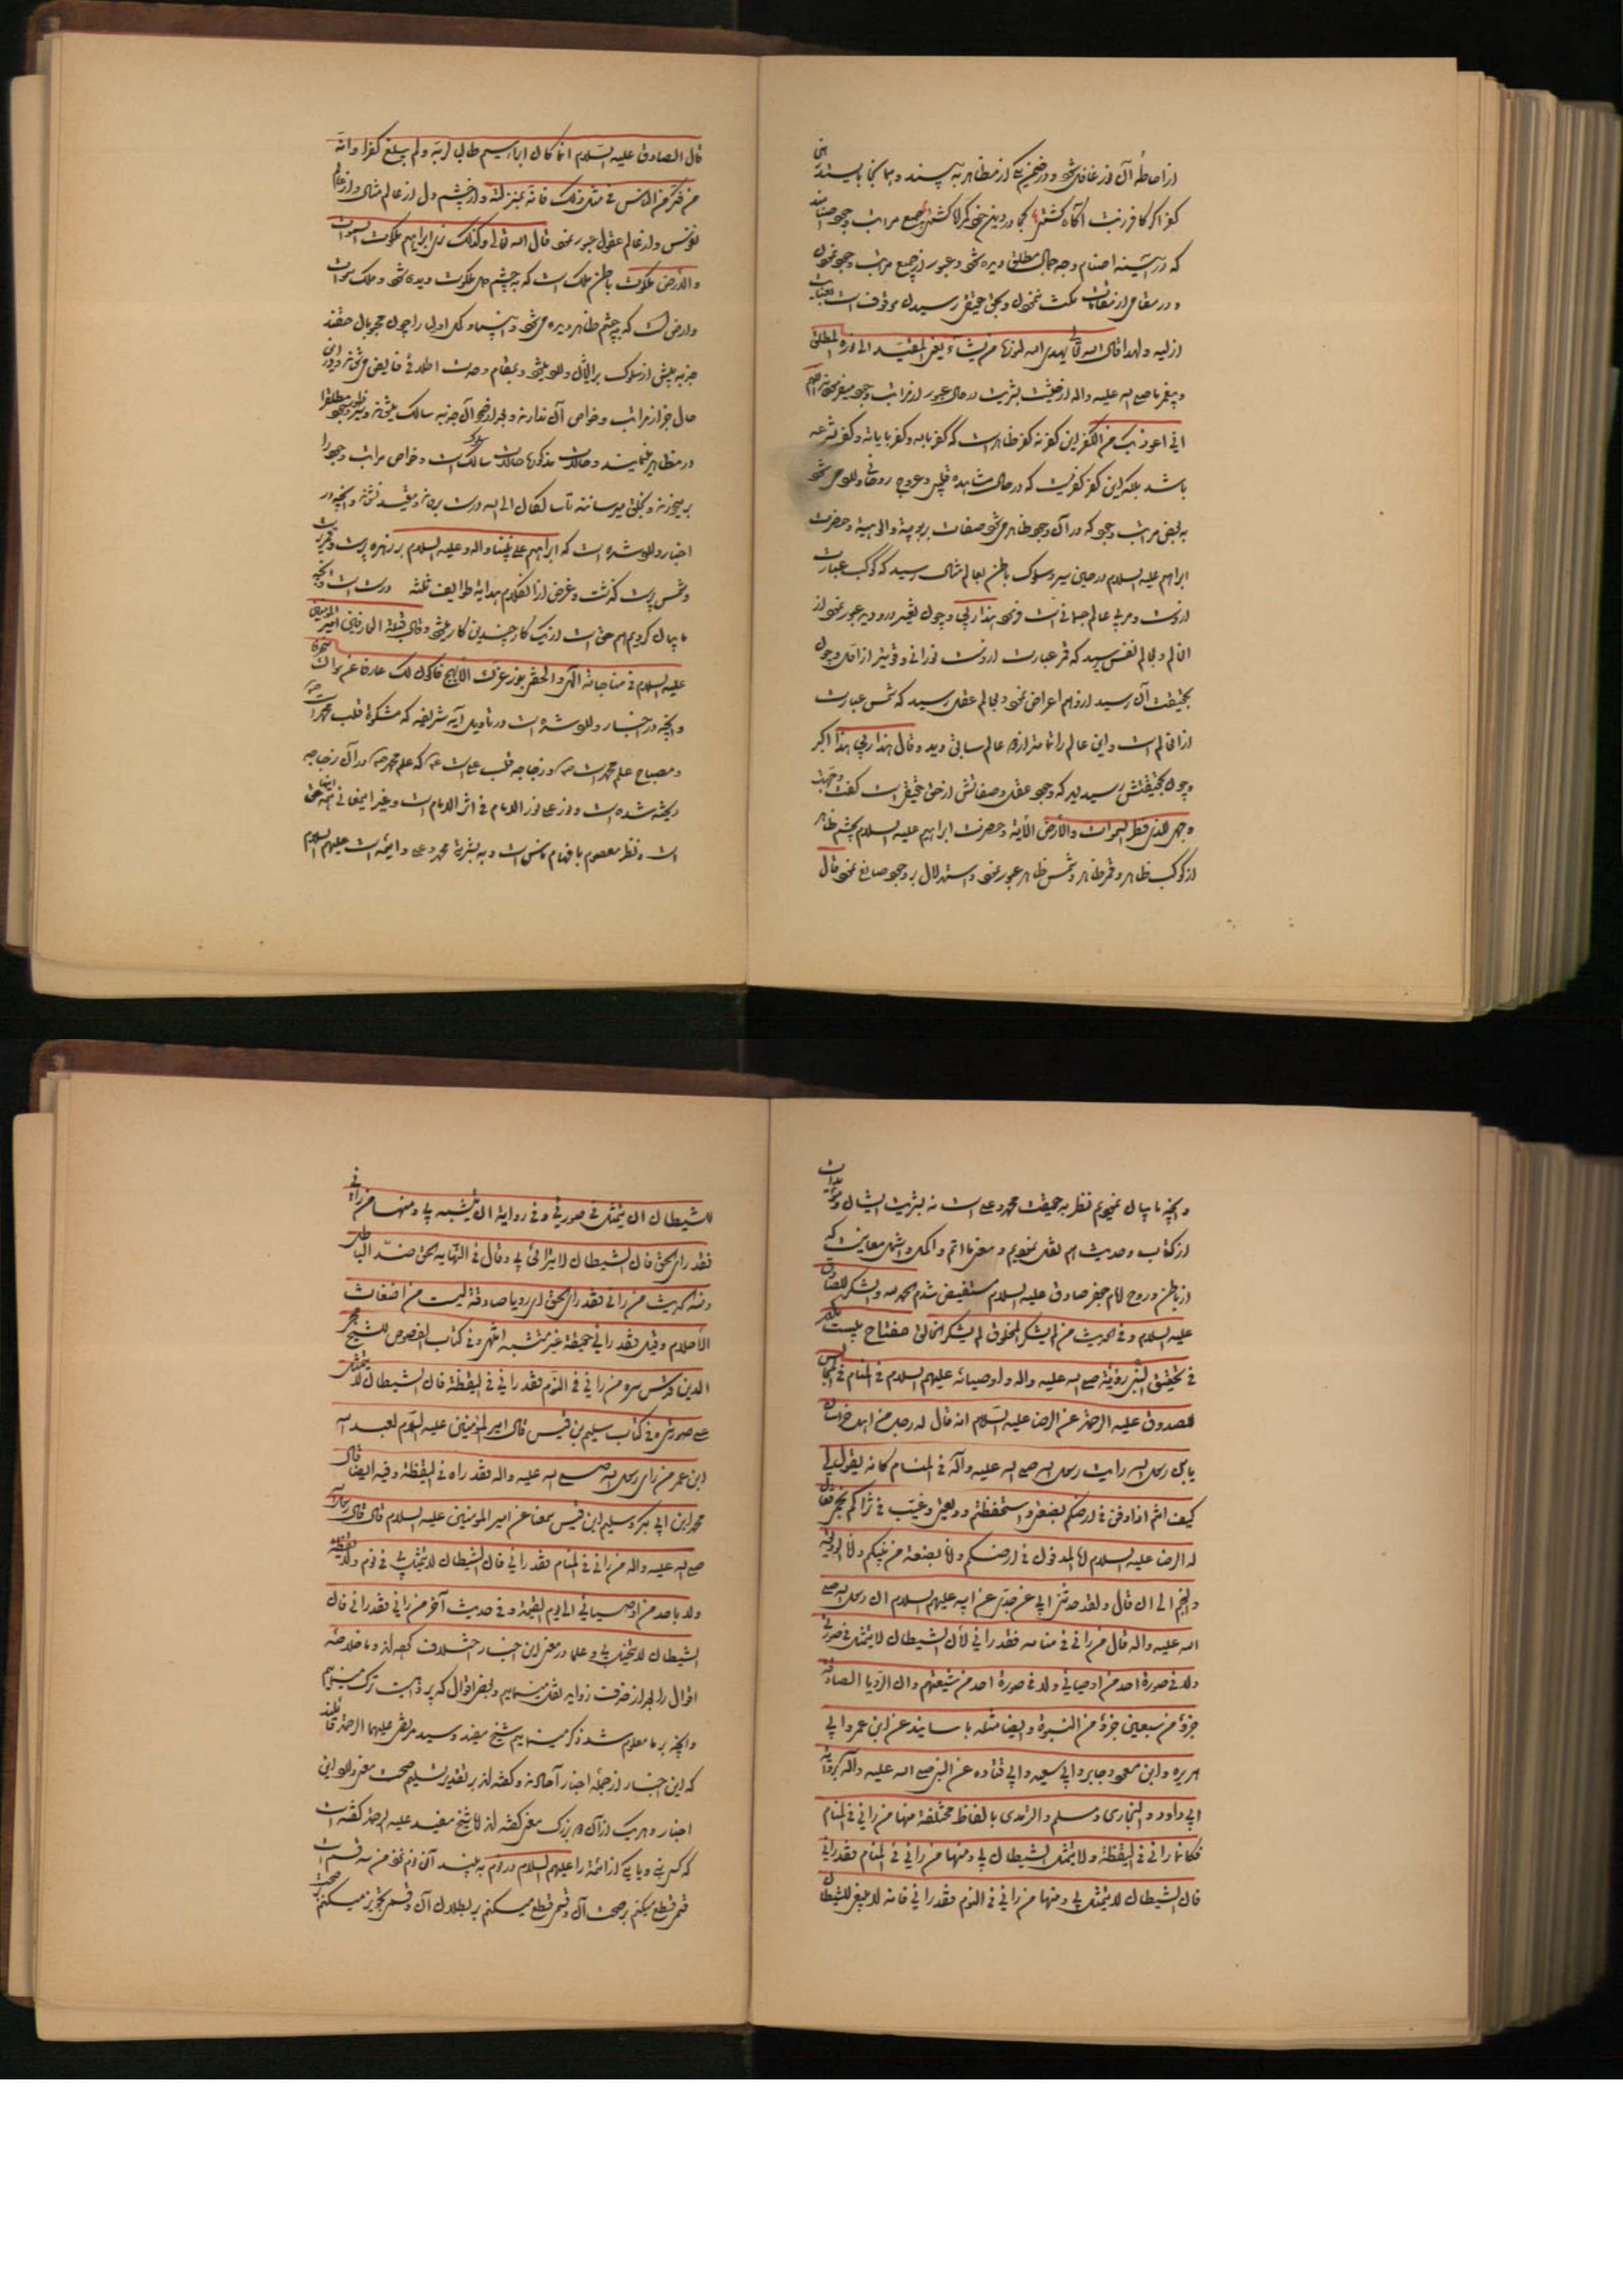 از احاطهٔ آن نور غافل شود و در ضمن یکی از مظاهر به بیند و همانجا بایستد
کفر اگر کافر ز بت آگاه گشتی کجا در دین خود گمراه گشتی جمیع مراتب وجود
که در آئینه اصنام وجه جمال مطلق دیده شود و عبور از جمیع مراتب وجود نمودن
و در مقامی از مقامات مکث ننمودن و بحق حقیقی رسیدن موقوف است بعنایات
ازلیه و لهذا قال الله تعالی یهدی الله لنوره من یشاء یعنی المقید الی نوره المطلق
و پیغمبر ما صلی الله علیه واله از حیثیت بشریت در حال عبور از مراتب وجود میفرمود
انی اعوذ بک من الکفر این کفر نه کفر ظاهر است که کفر بالله و کفر بایاته و کفر شرعی
باشد بلکه این کفر کفریست که در حال مشاهده قلبی و عروج روحانی وارد می شود
به بعض مراتب وجود که در آن وجود ظاهر می شود صفات ربوبیة و الوهیة و حضرت
ابراهیم علیه السلام در حین سیر و سلوک باطن بعالم مثال رسید که کوکب عبارت
ازوست و مربی عالم جسمانی است فرمود هذا ربی و چون تغییر درو دید عبور نمود از
ان عالم و بعالم نفس رسید که قمر عبارت ازوست نورانی و قویتر از اول و چون
بحقیقت آن رسید ازو هم اعراض نمود و بعالم عقل رسید که شمس عبارت
از ان عالم است و این عالم را تمامتر از دو عالم سابق دید و قال هذا ربی هذا اکبر
و چون بحقیقتش رسید دید که وجود عقل و صفاتش از حق حقیقی است گفت وجهت
وجهی للذی فطر السموات والارض الآیة و حضرت ابراهیم علیه السلام بچشم ظاهر
از کوکب ظاهر و قمر ظاهر و شمس ظاهر عبور نمود و استدلال بر وجود صانع نمود قال
قال الصادق علیه السلام انما کان ابراهیم طالبا لربه ولم یبلغ کفرا وانه
من فکر من الناس فی مثل ذلک فانه بمنزلته و از چشم دل از عالم مثال و از عالم
نفوس و از عالم عقول عبور نمود قال الله تعالی وکذلک نری ابراهیم ملکوت السموات
والارض ملکوت باطن ملک است که به چشم دل ملکوت دیده شود و ملک سموات
و ارض است که به چشم ظاهر دیده می شود و انبیا و کل اولیا را چون محبوبان حقند
جذبه پیش از سلوک بر ایشان وارد میشود و بمقام وحدت اطلاقی فایض می شوند و در این
حال خبر از مراتب و خواص آن ندارند و بعد از رجوع آن جذبه سالک میشوند و سیر نور وجود مطلق را
در مظاهر مینمایند و حالات مذکوره حالات سلوک سالک است و خواص مراتب وجود را
بر میخورند و بخلق میرسانند تا سالکان الی الله درست بروند و مقید نشوند و آنچه در
اخبار وارد شده است که ابراهیم علی نبینا واله و علیه السلام بر زهره پرست و قمر پرست
و شمس پرست گذشت و غرض از الکلام هدایة طوایف ثلثه درست است و آنچه
ما بیان کردیم هم حق است از یک کار چندین کار میشود و قال قبلة العارفین امیر المؤمنین
علیه السلام فی مناجاته الهی والحقنی بنور عزک الابهج فاکون لک عارفا وعن سواک منحرفا
و آنچه در اخبار وارد شده است در تاویل آیه شریفه که مشکوة قلب محمد است
و مصباح علم محمد است ص و زجاجه قلب علی است ع که علم محمد ص در آن زجاجه
ریخته شده است و نور علی نور الامام فی اثر الامام است و غیر ایمعانی همه حق
است و نظر معصوم با فهام ناس است و به بشریة محمد و علی و ائمه است علیهم السلام
و آنچه ما بیان نمودیم نظر به حقیقت محمد و علی است نه بشریت ایشان
از کتاب و حدیث هم نقل نمودیم و معنی ما اتم و اکمل و اشهل معانیست که
از باطن و روح امام جعفر صادق علیه السلام مستفیض شدم الحمد لله والشکر للصادق
علیه السلام وفی الحدیث من لم یشکر المخلوق لم یشکر الخالق مفتاح بیست
فی تحقیق رؤیة النبی صلی الله علیه واله واوصیائه علیهم السلام فی المنام فی المجالس
للصدوق علیه الرحمة عن الرضا علیه السلام انه قال له رجل من اهل خراسان
یابن رسول الله رایت رسول الله صلی الله علیه وآله فی المنام کانه یقول لی
کیف انتم اذا دفن فی ارضکم بضعتی واستحفظتم ودیعتی وغیب فی ثراکم نجمی فقال
له الرضا علیه السلام انا المدفون فی ارضکم وانا بضعة من نبیکم وانا الودیعة
والنجم الی ان قال ولقد حدثنی ابی عن جدی عن ابیه علیهم السلام ان رسول الله صلی
الله علیه واله قال من رانی فی منامه فقد رانی لان الشیطان لا یتمثل فی صورتی
ولا فی صورة احد من اوصیائی ولا فی صورة احد من شیعتهم وان الرؤیا الصادقة
جزؤ من سبعین جزؤ من النبوة وایضا مثله باسانید عن ابن عمر وابی
هریره وابن مسعود وجابر وابی سعید وابی قتاده عن النبی صلی الله علیه وآله بروایة
ابی داود والبخاری ومسلم والترمذی بالفاظ مختلفة منها من رانی فی المنام
فکانما رانی فی الیقظة ولا یتمثل الشیطان بی ومنها من رانی فی المنام فقد رانی
فان الشیطان لا یتمثل بی ومنها من رانی فی النوم فقد رانی فانه لا ینبغی للشیطان
للشیطان ان یتمثل فی صورتی وفی روایة ان یتشبه بی ومنها من رانی
فقد رای الحق فان الشیطان لا یترائی بی وقال فی النهایه الحق ضد الباطل
ومنه الحدیث من رانی فقد رای الحق ای رویا صادقة لیست من اضغاث
الاحلام وقیل فقد رانی حقیقة غیر مشتبه انتهی وفی کتاب الفصوص للشیخ محیی
الدین قدس سره من رانی فی النوم فقد رانی فی الیقظة فان الشیطان لا یتمثل
علی صورتی وفی کتاب سلیم بن قیس قال امیر المؤمنین علیه السلام لعبد الله
ابن عمر من رای رسول الله صلی الله علیه واله فقد راه فی الیقظة وفیه ایضا قال
محمد ابن ابی بکر وسلیم ابن قیس سمعنا عن امیر المومنین علیه السلام قال قال رسول الله
صلی الله علیه واله من رانی فی المنام فقد رانی فان الشیطان لا یتمثل بی فی نوم ولا یقظة
ولا باحد من اوصیائی الی یوم القیمة وفی حدیث آخر من رانی فقد رانی فان
الشیطان لا یتخیل بی و علما در معنی این اخبار اختلاف کرده اند و ما خلاصه
اقوال را بعد از حذف زواید نقل مینماییم و بعض اقوال که پر واهیست ترک مینماییم
و آنچه بر ما معلوم شد ذکر مینماییم شیخ مفید و سید مرتضی علیهما الرحمة قائلند
که این اخبار از جمله اخبار آحادند و گفته اند بر تقدیر تسلیم صحت معنی دارد این
اخبار و هر یک از آن دو بزرگ معنی گفته اند اما شیخ مفید علیه الرحمة گفته است
که کسی نبی و یا یکی از ائمه را علیهم السلام در نوم به بیند آن نوم نزد من سه قسم است
قسمی قطع میکنم بر صحت آن و قسمی قطع میکنم بر بطلان آن و قسمی تجویز میکنم